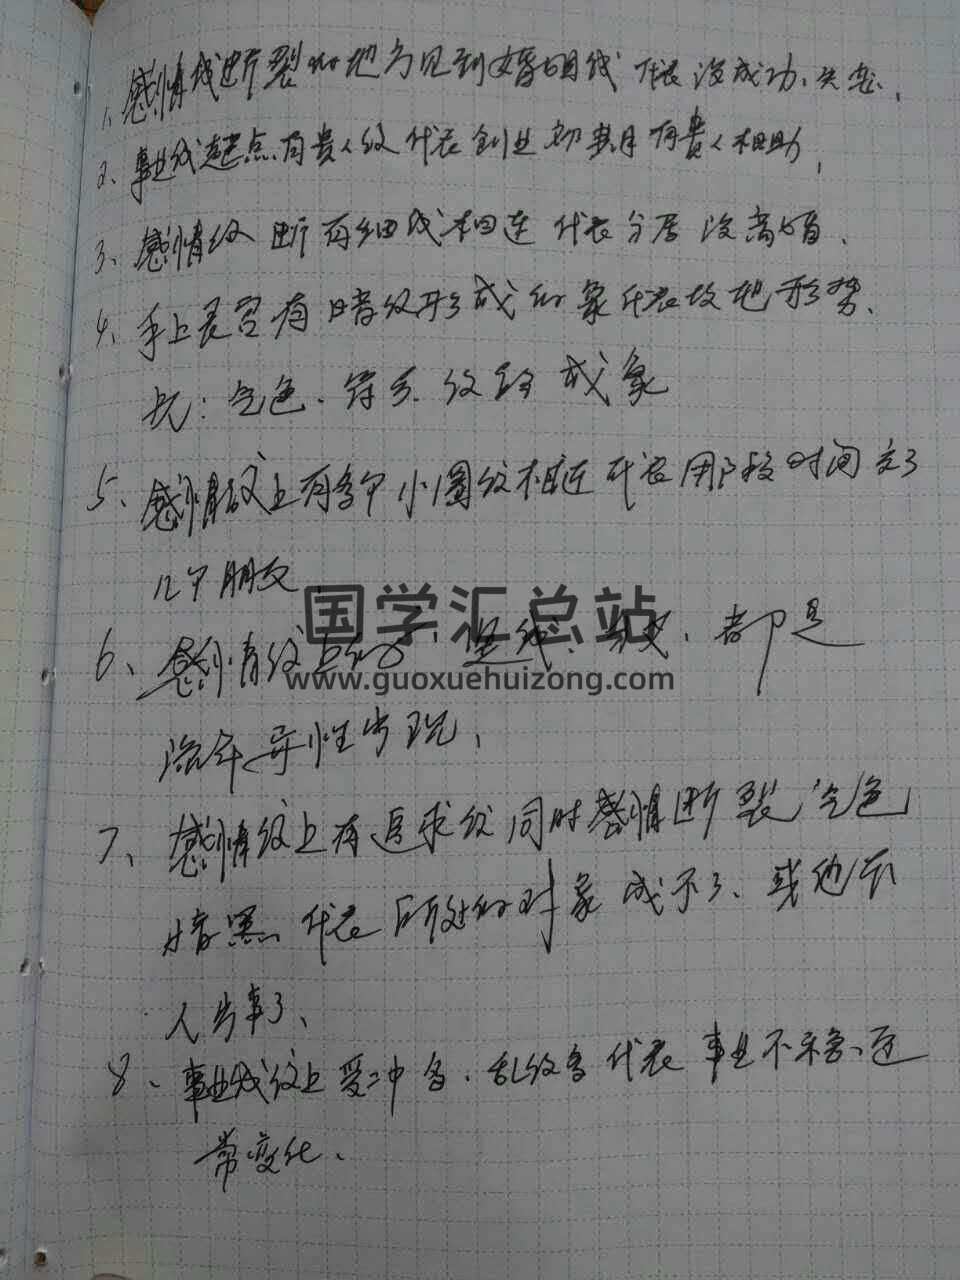 1、感情线断裂的地方见到婚姻线 代表没成功、失恋、
2、事业线起点有贵人纹 代表创业初期有贵人相助,
3、感情纹断 有细线相连 代表分居没离婚、
4、手上艮宫有暗纹形成的象代表坟地形势、
气色、符号、纹路 成象
5、感情纹上有多个小圈纹相连代表那段时间交了
几个朋友
国学汇总站
6、感情纹上的 竖线、都是
www.guoxuehuizong.com
流年异性出现、
7、感情纹上有追求纹同时感情断裂 气色
暗黑 代表所处的对象成不了、或他家
人出事了、
8、事业线纹上受冲多、乱纹多代表事业不稳、
常变化、